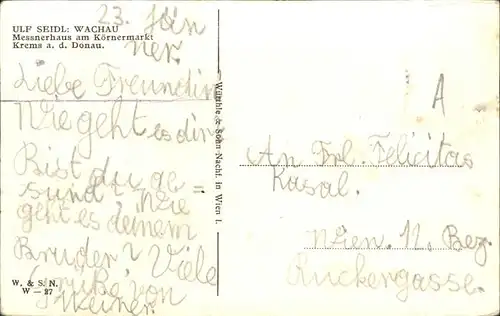 ULF SEIDL: WACHAU
Messnerhaus am Körnermarkt
Krems a. d. Donau.
23. Jän
ner.
Liebe Freundin
Wie geht es dir
Bist du ge
sund? Wie =
geht es deinem
Bruder? Viele
Grüße von
W. & S. N.
W — 27
Würthle & Sohn Nachf. in Wien I.
A
An Frl. Felicitas
Kasal.
Wien. 12. Bez.
Ruckergasse.